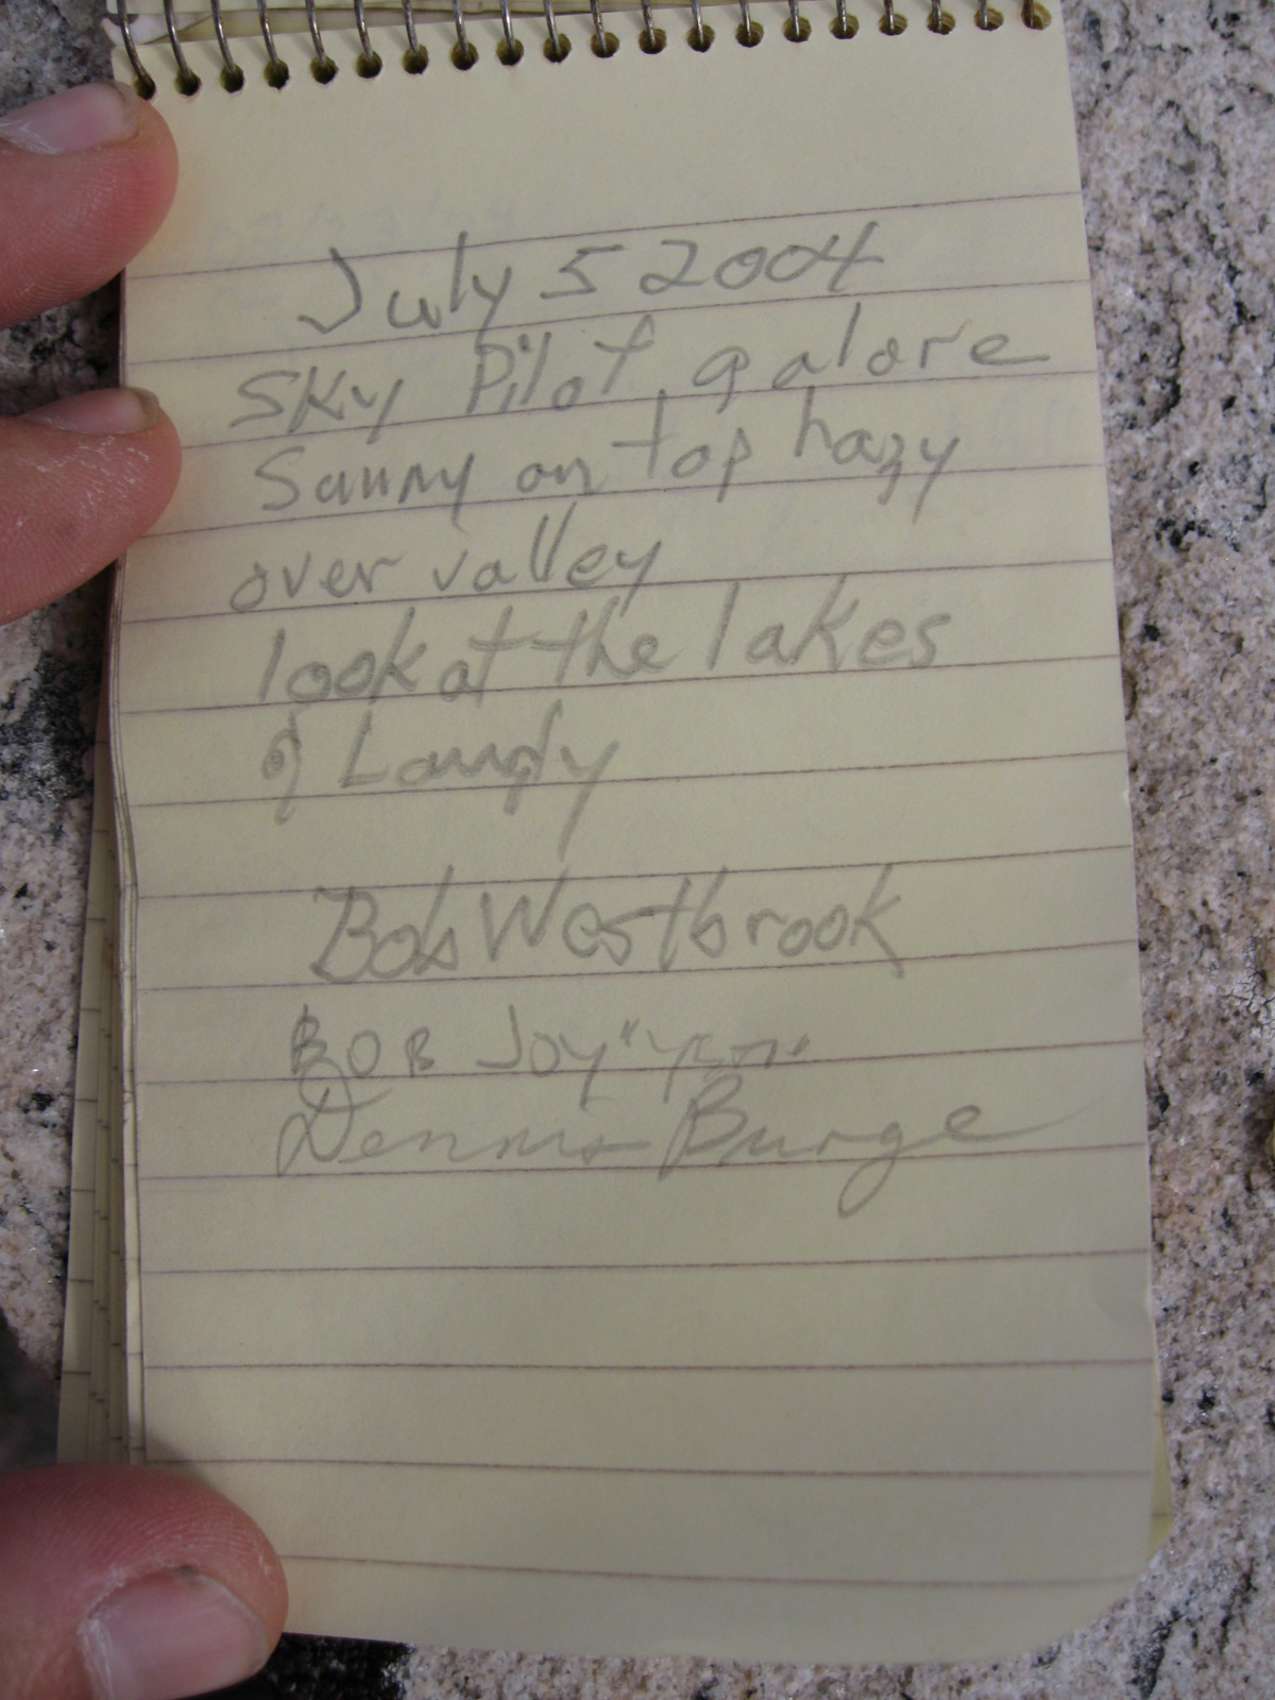 July 5 2004
Sky Pilot galore
Sunny on top hazy
over valley
look at the lakes
of Lundy
Bob Westbrook
BOB Joy
Dennis Burge